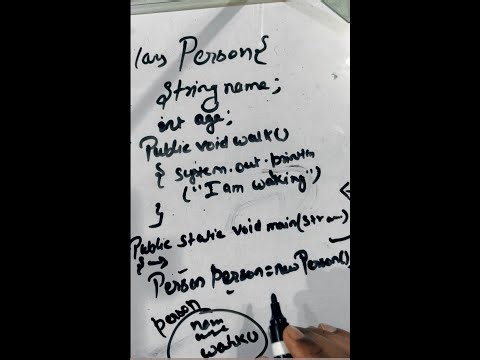 lass Person{
String name;
int age;
Public void walk()
{ System.out.println
("I am walking")
}
Public static void main(Strin)
{→
Person person=new Person()
person
name
age
walk()